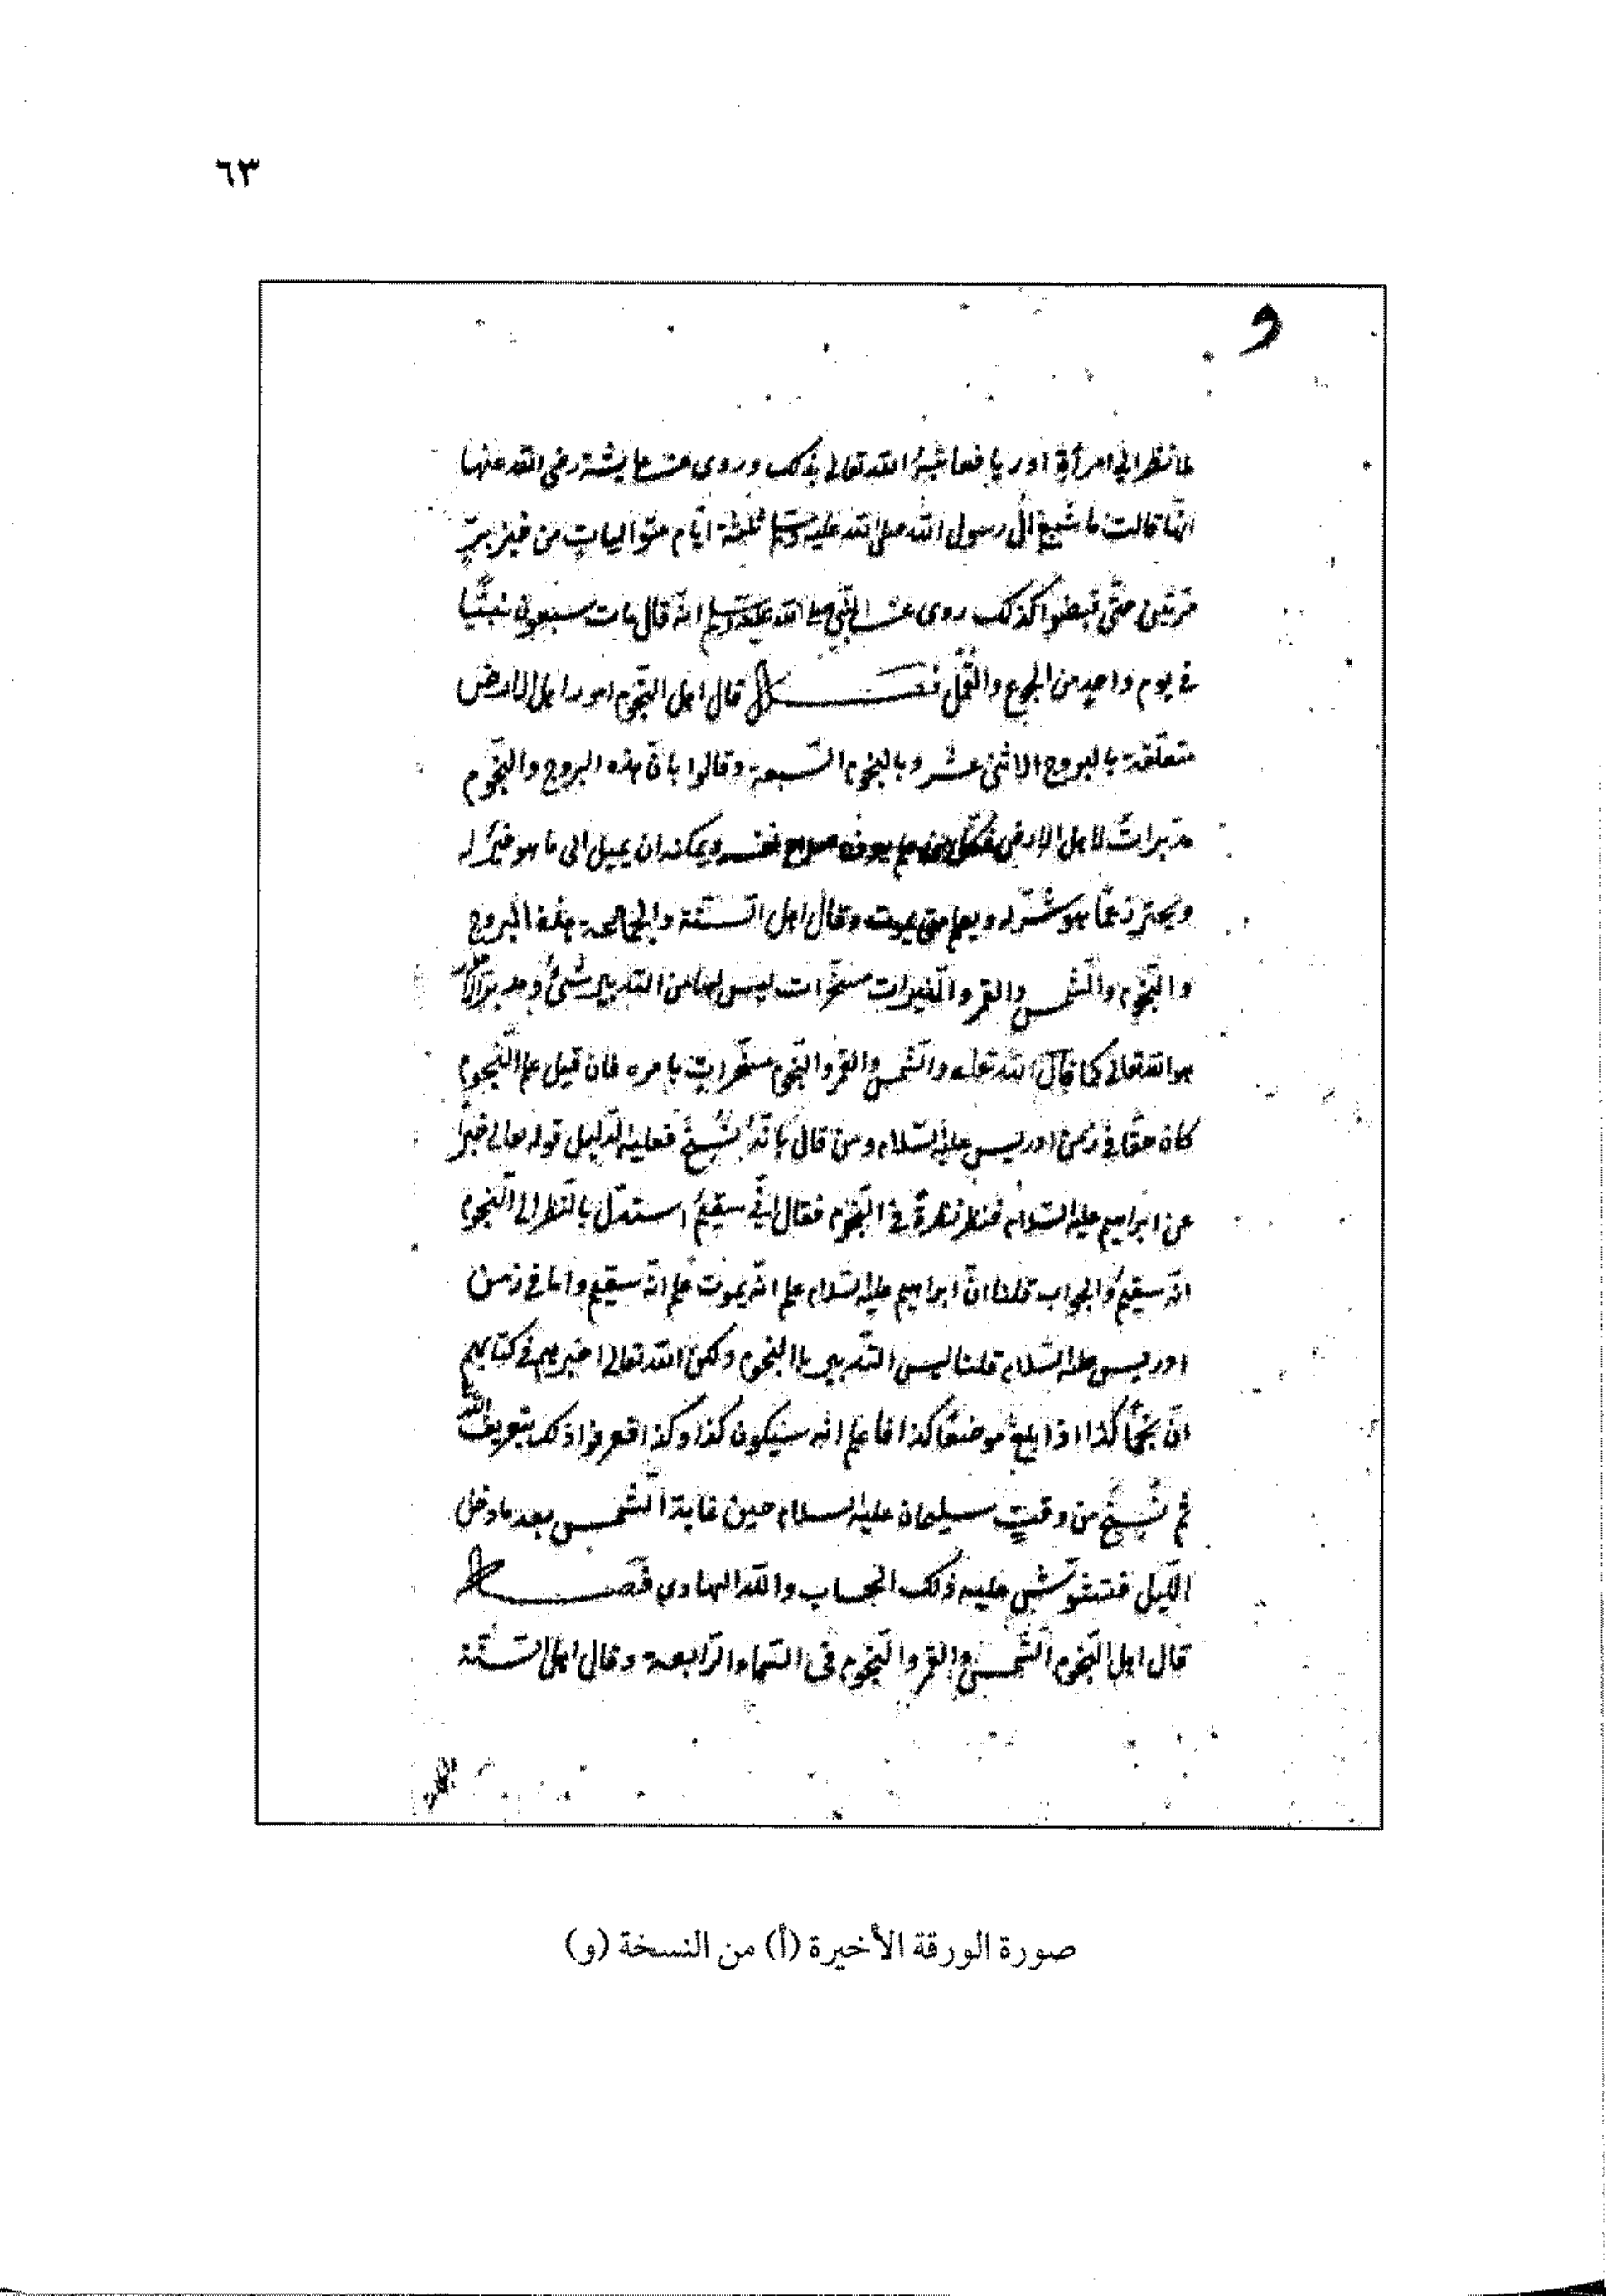 ٦٣
و
لما نظر الى امرأة اوريا فعاتبه الله تعالى بذلك وروى عن عايشة رضى الله عنها
انها قالت ما شبع آل رسول الله صلى الله عليه وسلم ثلثة ايام متواليات من خبز برّ
مرتين حتى قبضوا كذلك روى عن النبى صلى الله عليه وسلم انه قال مات سبعون نبيّا
فى يوم واحد من الجوع والقمل فصل قال اهل النجوم امور اهل الارض
متعلقة بالبروج الاثنى عشر وبالنجوم السبعة وقالوا بان هذه البروج والنجوم
مدبرات لاهل الارض فكل من صلاح نفسه ويمكنه ان يميل الى ما هو خير له
ويحترز عما هو شر له ويعلم متى يموت وقال اهل السنة والجماعة هذه البروج
والنجوم والشمس والقمر والمغيرات مسخرات ليس لها من التدبير شئ ومدبر
هو الله تعالى كما قال الله تعالى والشمس والقمر والنجوم مسخرات بامره فان قيل علم النجوم
كان حقا فى زمن ادريس عليه السلام ومن قال بانه نسخ فعليه الدليل قوله تعالى خبرا
عن ابراهيم عليه السلام فنظر نظرة فى النجوم فقال انى سقيم استدل بالنظر الى النجوم
انه سقيم والجواب قلنا ان ابراهيم عليه السلام علم انه يموت علم انه سقيم واما فى زمن
ادريس عليه السلام قلنا ليس التدبير باالنجوم ولكن الله تعالى اخبرهم فى كتابهم
ان نجما كذا اذا بلغ موضعا كذا فاعلم انه سيكون كذا وكذا فعرفوا ذلك بتعريف الله
ثم نسخ من وقت سليمان عليه السلام حين غابة الشمس بعد ما دخل
الليل فتشوش عليه ذلك الحساب والله الهادى فصل
قال اهل النجوم الشمس والقمر والنجوم فى السماء الرابعة وقال اهل السنة
صورة الورقة الأخيرة (أ) من النسخة (و)